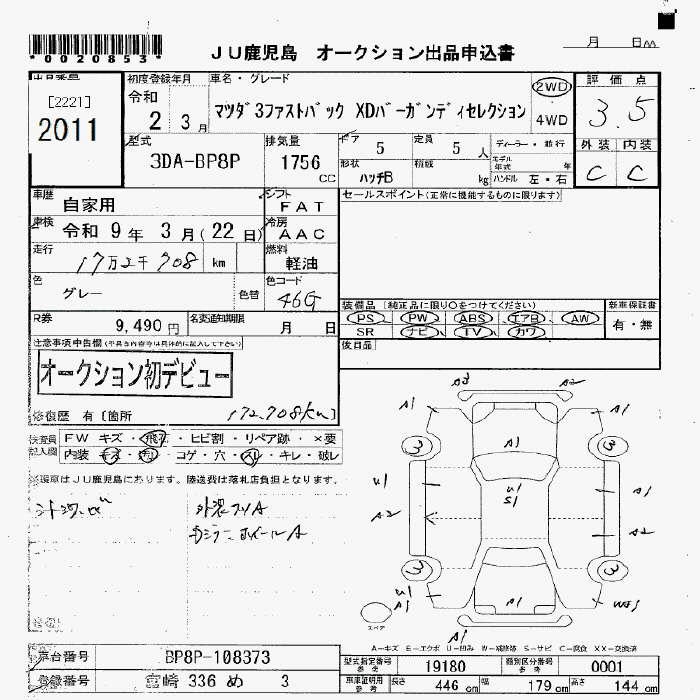 *0020853*
JU鹿児島 オークション出品申込書
月 日
出品番号
[2221]
2011
初度登録年月
令和
2 3月
車名・グレード
マツダ3ファストバック XDバーガンディセレクション
2WD
4WD
評価点
3.5
型式
3DA-BP8P
排気量
1756 CC
ギア 5
定員 5 人
ディーラー・並行
形状 ハッチB
積載 kg
モデル年式 年
ハンドル 左・右
外装 内装
C C
車歴 自家用
シフト FAT
セールスポイント(正常に機能するものに限ります)
車検 令和 9年 3月(22日)
冷房 AAC
走行 17万2千708 km
燃料 軽油
色 グレー
色替
色コード 46G
装備品(純正品に限り○をつけてください)
新車保証書
PS PW ABS エアB AW
有・無
SR ナビ TV カワ
R券 9,490円
名変通知期限 月 日
後日品
注意事項申告欄
オークション初デビュー
修復歴 有〔箇所
172,708km
検査員記入欄
FW キズ・飛石・ヒビ割・リペア跡・×要
内装 キズ・汚・コゲ・穴・スレ・キレ・破レ
※現車はJU鹿児島にあります。陸送費は落札店負担となります。
外装フリA
カラー ホイールA
A3 A2
A1 A1
A1
3 3
U1 U1 A1
S1
A2 A2
3 3
U1 A1
A1
A1
スペア
A-キズ E-エクボ U-凹み W-補修跡 S-サビ C-腐食 XX-交換済
車台番号 BP8P-108373
登録番号 宮崎 336 め 3
型式指定番号 参考 19180
類別区分番号 参考 0001
車庫証明用 参考
長さ 446 cm
幅 179 cm
高さ 144 cm